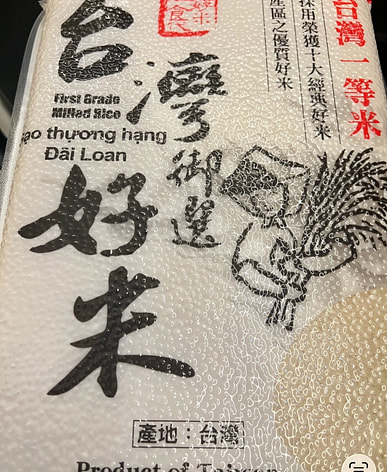 台灣一等米
採用榮獲十大經典好米
產區之優質好米
好米
台灣
御選
First Grade
Milled Rice
ạo thương hạng
Đài Loan
好米
產地：台灣
Product of Taiwan